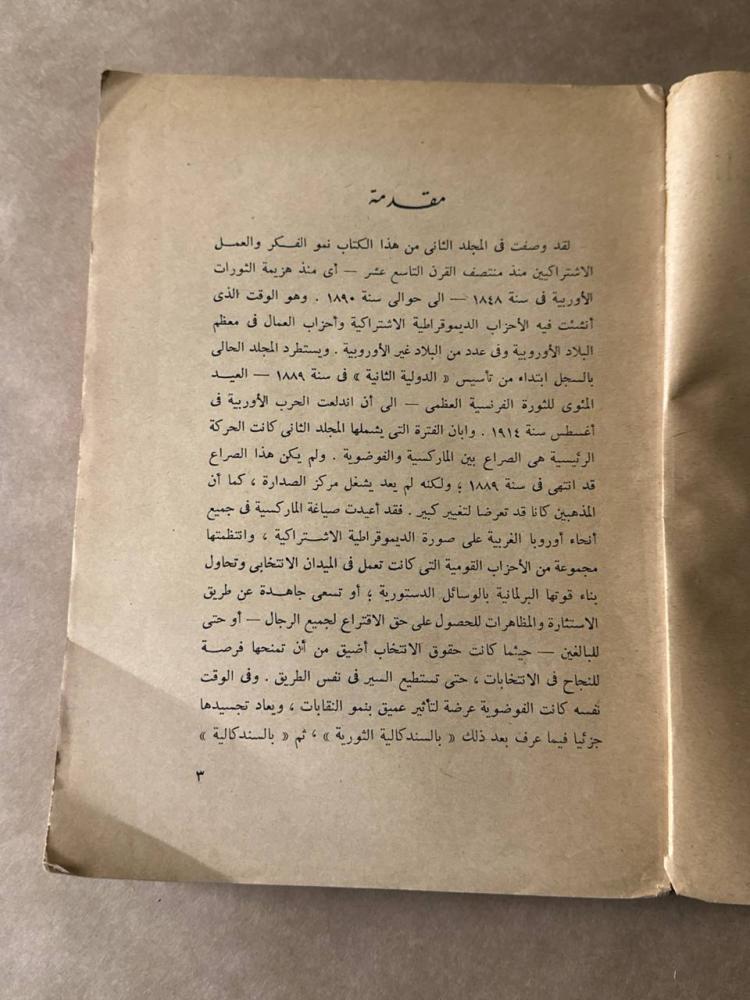 مقدمة
لقد وصفت فى المجلد الثانى من هذا الكتاب نمو الفكر والعمل
الاشتراكيين منذ منتصف القرن التاسع عشر — أى منذ هزيمة الثورات
الأوربية فى سنة ١٨٤٨ — الى حوالى سنة ١٨٩٠ . وهو الوقت الذى
أنشئت فيه الأحزاب الديموقراطية الاشتراكية وأحزاب العمال فى معظم
البلاد الأوروبية وفى عدد من البلاد غير الأوروبية . ويستطرد المجلد الحالى
بالسجل ابتداء من تأسيس « الدولية الثانية » فى سنة ١٨٨٩ — العيد
المئوى للثورة الفرنسية العظمى — الى أن اندلعت الحرب الأوربية فى
أغسطس سنة ١٩١٤ . وابان الفترة التى يشملها المجلد الثانى كانت الحركة
الرئيسية هى الصراع بين الماركسية والفوضوية . ولم يكن هذا الصراع
قد انتهى فى سنة ١٨٨٩ ؛ ولكنه لم يعد يشغل مركز الصدارة ، كما أن
المذهبين كانا قد تعرضا لتغيير كبير . فقد أعيدت صياغة الماركسية فى جميع
أنحاء أوروبا الغربية على صورة الديموقراطية الاشتراكية ، وانتظمتها
مجموعة من الأحزاب القومية التى كانت تعمل فى الميدان الانتخابى وتحاول
بناء قوتها البرلمانية بالوسائل الدستورية ؛ أو تسعى جاهدة عن طريق
الاستثارة والمظاهرات للحصول على حق الاقتراع لجميع الرجال — أو حتى
للبالغين — حيثما كانت حقوق الانتخاب أضيق من أن تمنحها فرصة
للنجاح فى الانتخابات ، حتى تستطيع السير فى نفس الطريق . وفى الوقت
نفسه كانت الفوضوية عرضة لتأثير عميق بنمو النقابات ، ويعاد تجسيدها
جزئيا فيما عرف بعد ذلك « بالسندكالية الثورية » ، ثم « بالسندكالية »
٣